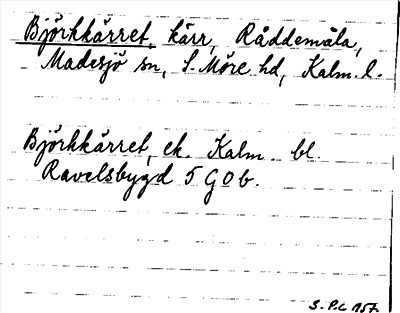 Björkkärret, kärr, Råddemåla,
Madesjö sn, S. Möre hd, Kalm. l.
Björkkärret, ek. Kalm. bl.
Ravelsbygd 5 G 0 b.
S. P.L 1957